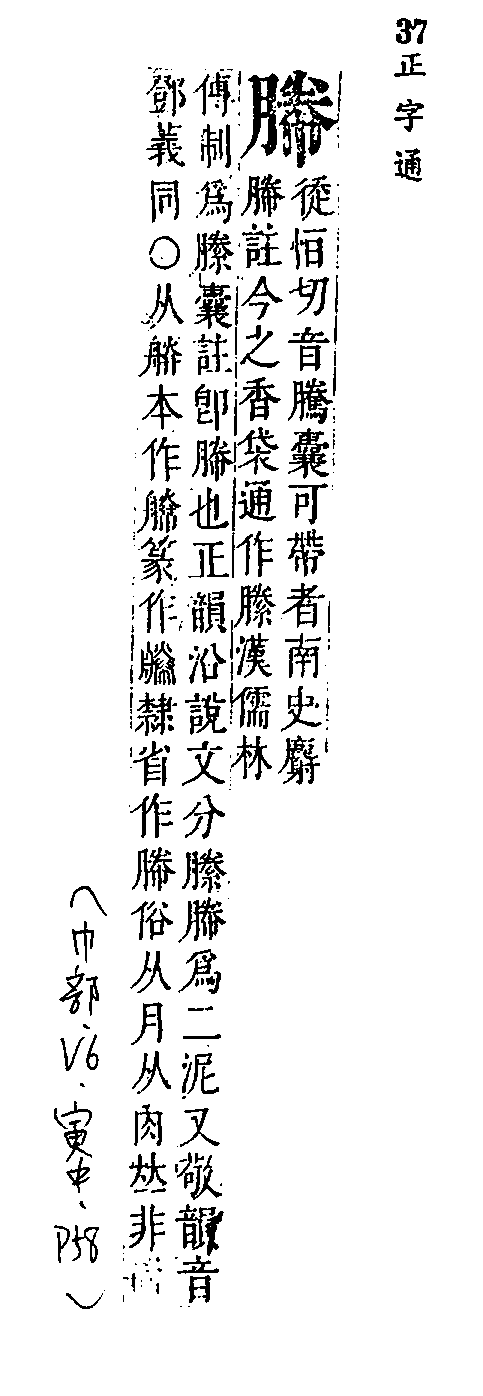 37正字通
幐
從恒切音騰囊可帶者南史麝
幐註今之香袋通作縢漢儒林
傳制爲縢囊註卽幐也正韻沿說文分縢幐爲二泥又敬韻音
鄧義同○从本作篆作隸省作幐俗从月从肉𠀤非
(巾部、V6、寅中、P58)